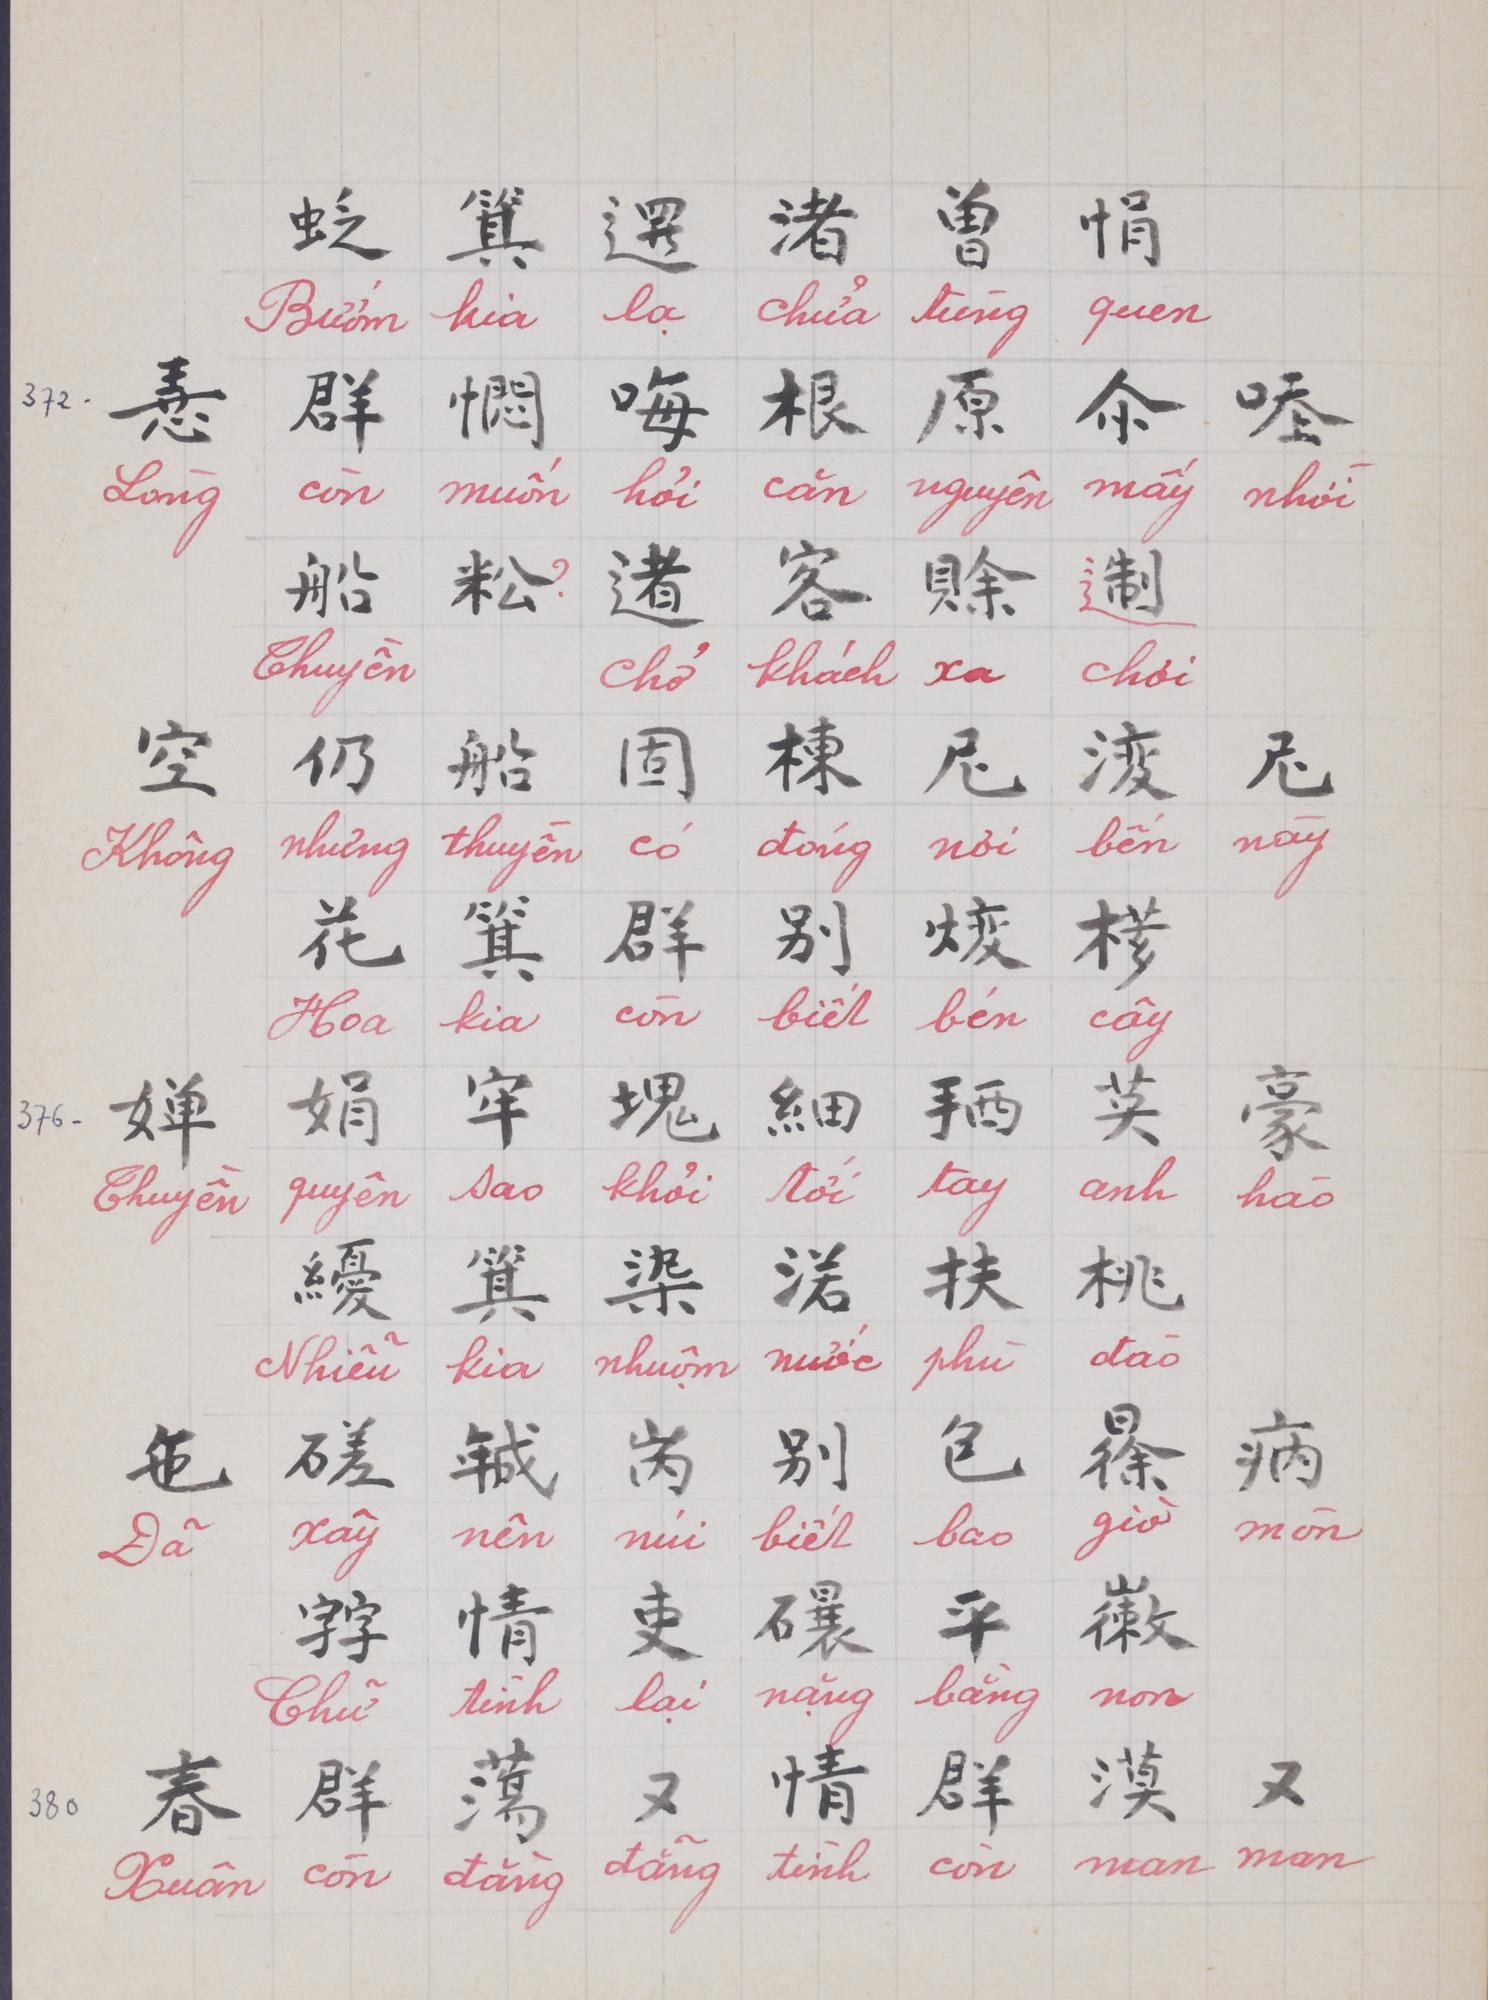 箕 渚 曾 悁
Bướm kia lạ chửa từng quen
372. 群 憫 哠 根 原 尒
Lòng còn muốn hỏi căn nguyên mấy nhời
船 粉? 客 賒
Thuyền chở khách xa chơi
空 仍 船 固 棟 尼 渡 尼
Không những thuyền có đóng nơi bến này
花 箕 群 別
Hoa kia còn biết bén cây
376- 嬋 娟 牢 塊 細 拪 英 豪
Thuyền quyên sao khỏi tới tay anh hào
箕 染 渃 扶 桃
Nhiễu kia nhuộm nước phù đào
磋 別 包 病
Đã xây nên núi biết bao giờ mòn
情 吏 平
Chữ tình lại nặng bằng non
380 春 群 蕩 又 情 群 漠 又
Xuân còn đẵng đẵng tình còn man man